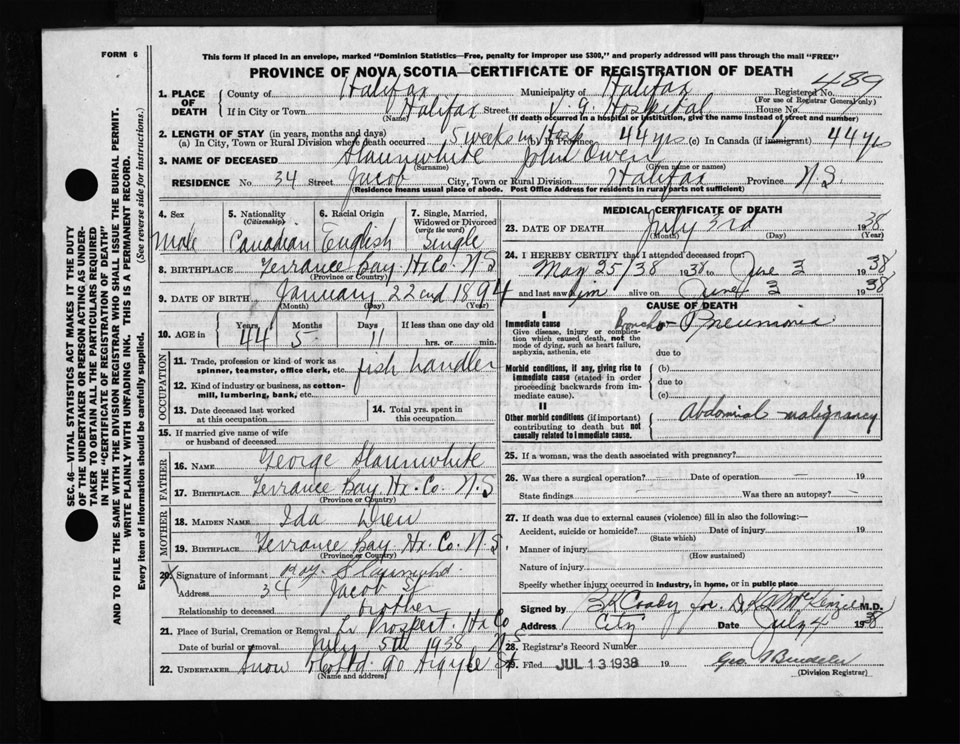 FORM 6
This form if placed in an envelope, marked "Dominion Statistics—Free, penalty for improper use $300," and properly addressed will pass through the mail "FREE"
PROVINCE OF NOVA SCOTIA—CERTIFICATE OF REGISTRATION OF DEATH
489
1. PLACE OF DEATH County of Halifax Municipality of Halifax Registered No.
(For use of Registrar General only)
If in City or Town Halifax Street V. G. Hospital House No.
(Name) (If death occurred in a hospital or institution, give the name instead of street and number)
2. LENGTH OF STAY (in years, months and days)
(a) In City, Town or Rural Division where death occurred 5 weeks in Hosp (b) In Province 44 yrs (c) In Canada (if immigrant) 44 yrs
3. NAME OF DECEASED Slaunwhite John Owen
(Surname) (Given name or names)
RESIDENCE No. 34 Street Jacob City, Town or Rural Division Halifax Province N.S.
(Residence means usual place of abode. Post Office Address for residents in rural parts not sufficient)
4. Sex Male
5. Nationality (Citizenship) Canadian
6. Racial Origin English
7. Single, Married, Widowed or Divorced (write the word) Single
8. BIRTHPLACE Terrance Bay. Hx Co N S
(Province or Country)
9. DATE OF BIRTH January 22nd 1894
(Month) (Day) (Year)
10. AGE in Years 44 Months 5 Days 11 If less than one day old hrs. or min.
OCCUPATION
11. Trade, profession or kind of work as spinner, teamster, office clerk, etc. fish handler
12. Kind of industry or business, as cotton-mill, lumbering, bank, etc.
13. Date deceased last worked at this occupation
14. Total yrs. spent in this occupation
15. If married give name of wife or husband of deceased
FATHER
16. NAME George Slaunwhite
17. BIRTHPLACE Terrance Bay Hx. Co. N.S
(Province or Country)
MOTHER
18. MAIDEN NAME Ida Drew
19. BIRTHPLACE Terrance Bay. Hx. Co. N.S.
(Province or Country)
20. Signature of informant Roy.
Address 34 Jacob St
Relationship to deceased brother
21. Place of Burial, Cremation or Removal Lr Prospect. Hx Co
Date of burial or removal July 5th 1938 N.S
22. UNDERTAKER Snow & Co Ltd. 90 Argyle St
(Name and address)
MEDICAL CERTIFICATE OF DEATH
23. DATE OF DEATH July 3rd 1938
(Month) (Day) (Year)
24. I HEREBY CERTIFY that I attended deceased from:
May 25/38 1938 to June 3 1938
and last saw him alive on June 3 1938
CAUSE OF DEATH
I
Immediate cause Broncho Pneumonia
Give disease, injury or complication which caused death, not the mode of dying, such as heart failure, asphyxia, asthenia, etc
due to
Morbid conditions, if any, giving rise to immediate cause (stated in order proceeding backwards from immediate cause).
(b)
due to
(c)
II
Other morbid conditions (if important) contributing to death but not causally related to immediate cause. Abdominal malignancy
25. If a woman, was the death associated with pregnancy?
26. Was there a surgical operation? Date of operation 19
State findings Was there an autopsy?
27. If death was due to external causes (violence) fill in also the following:—
Accident, suicide or homicide? Date of injury 19
(State which)
Manner of injury
(How sustained)
Nature of injury
Specify whether injury occurred in industry, in home, or in public place
Signed by for McKenzie M.D.
Address City Date July 4 1938
28. Registrar's Record Number
29. Filed JUL 13 1938 19 Geo
(Division Registrar)
SEC. 46—VITAL STATISTICS ACT MAKES IT THE DUTY
OF THE UNDERTAKER OR PERSON ACTING AS UNDER-
TAKER TO OBTAIN ALL THE PARTICULARS REQUIRED
IN THE "CERTIFICATE OF REGISTRATION OF DEATH"
AND TO FILE THE SAME WITH THE DIVISION REGISTRAR WHO SHALL ISSUE THE BURIAL PERMIT.
WRITE PLAINLY WITH UNFADING INK. THIS IS A PERMANENT RECORD.
Every item of information should be carefully supplied. (See reverse side for instructions.)